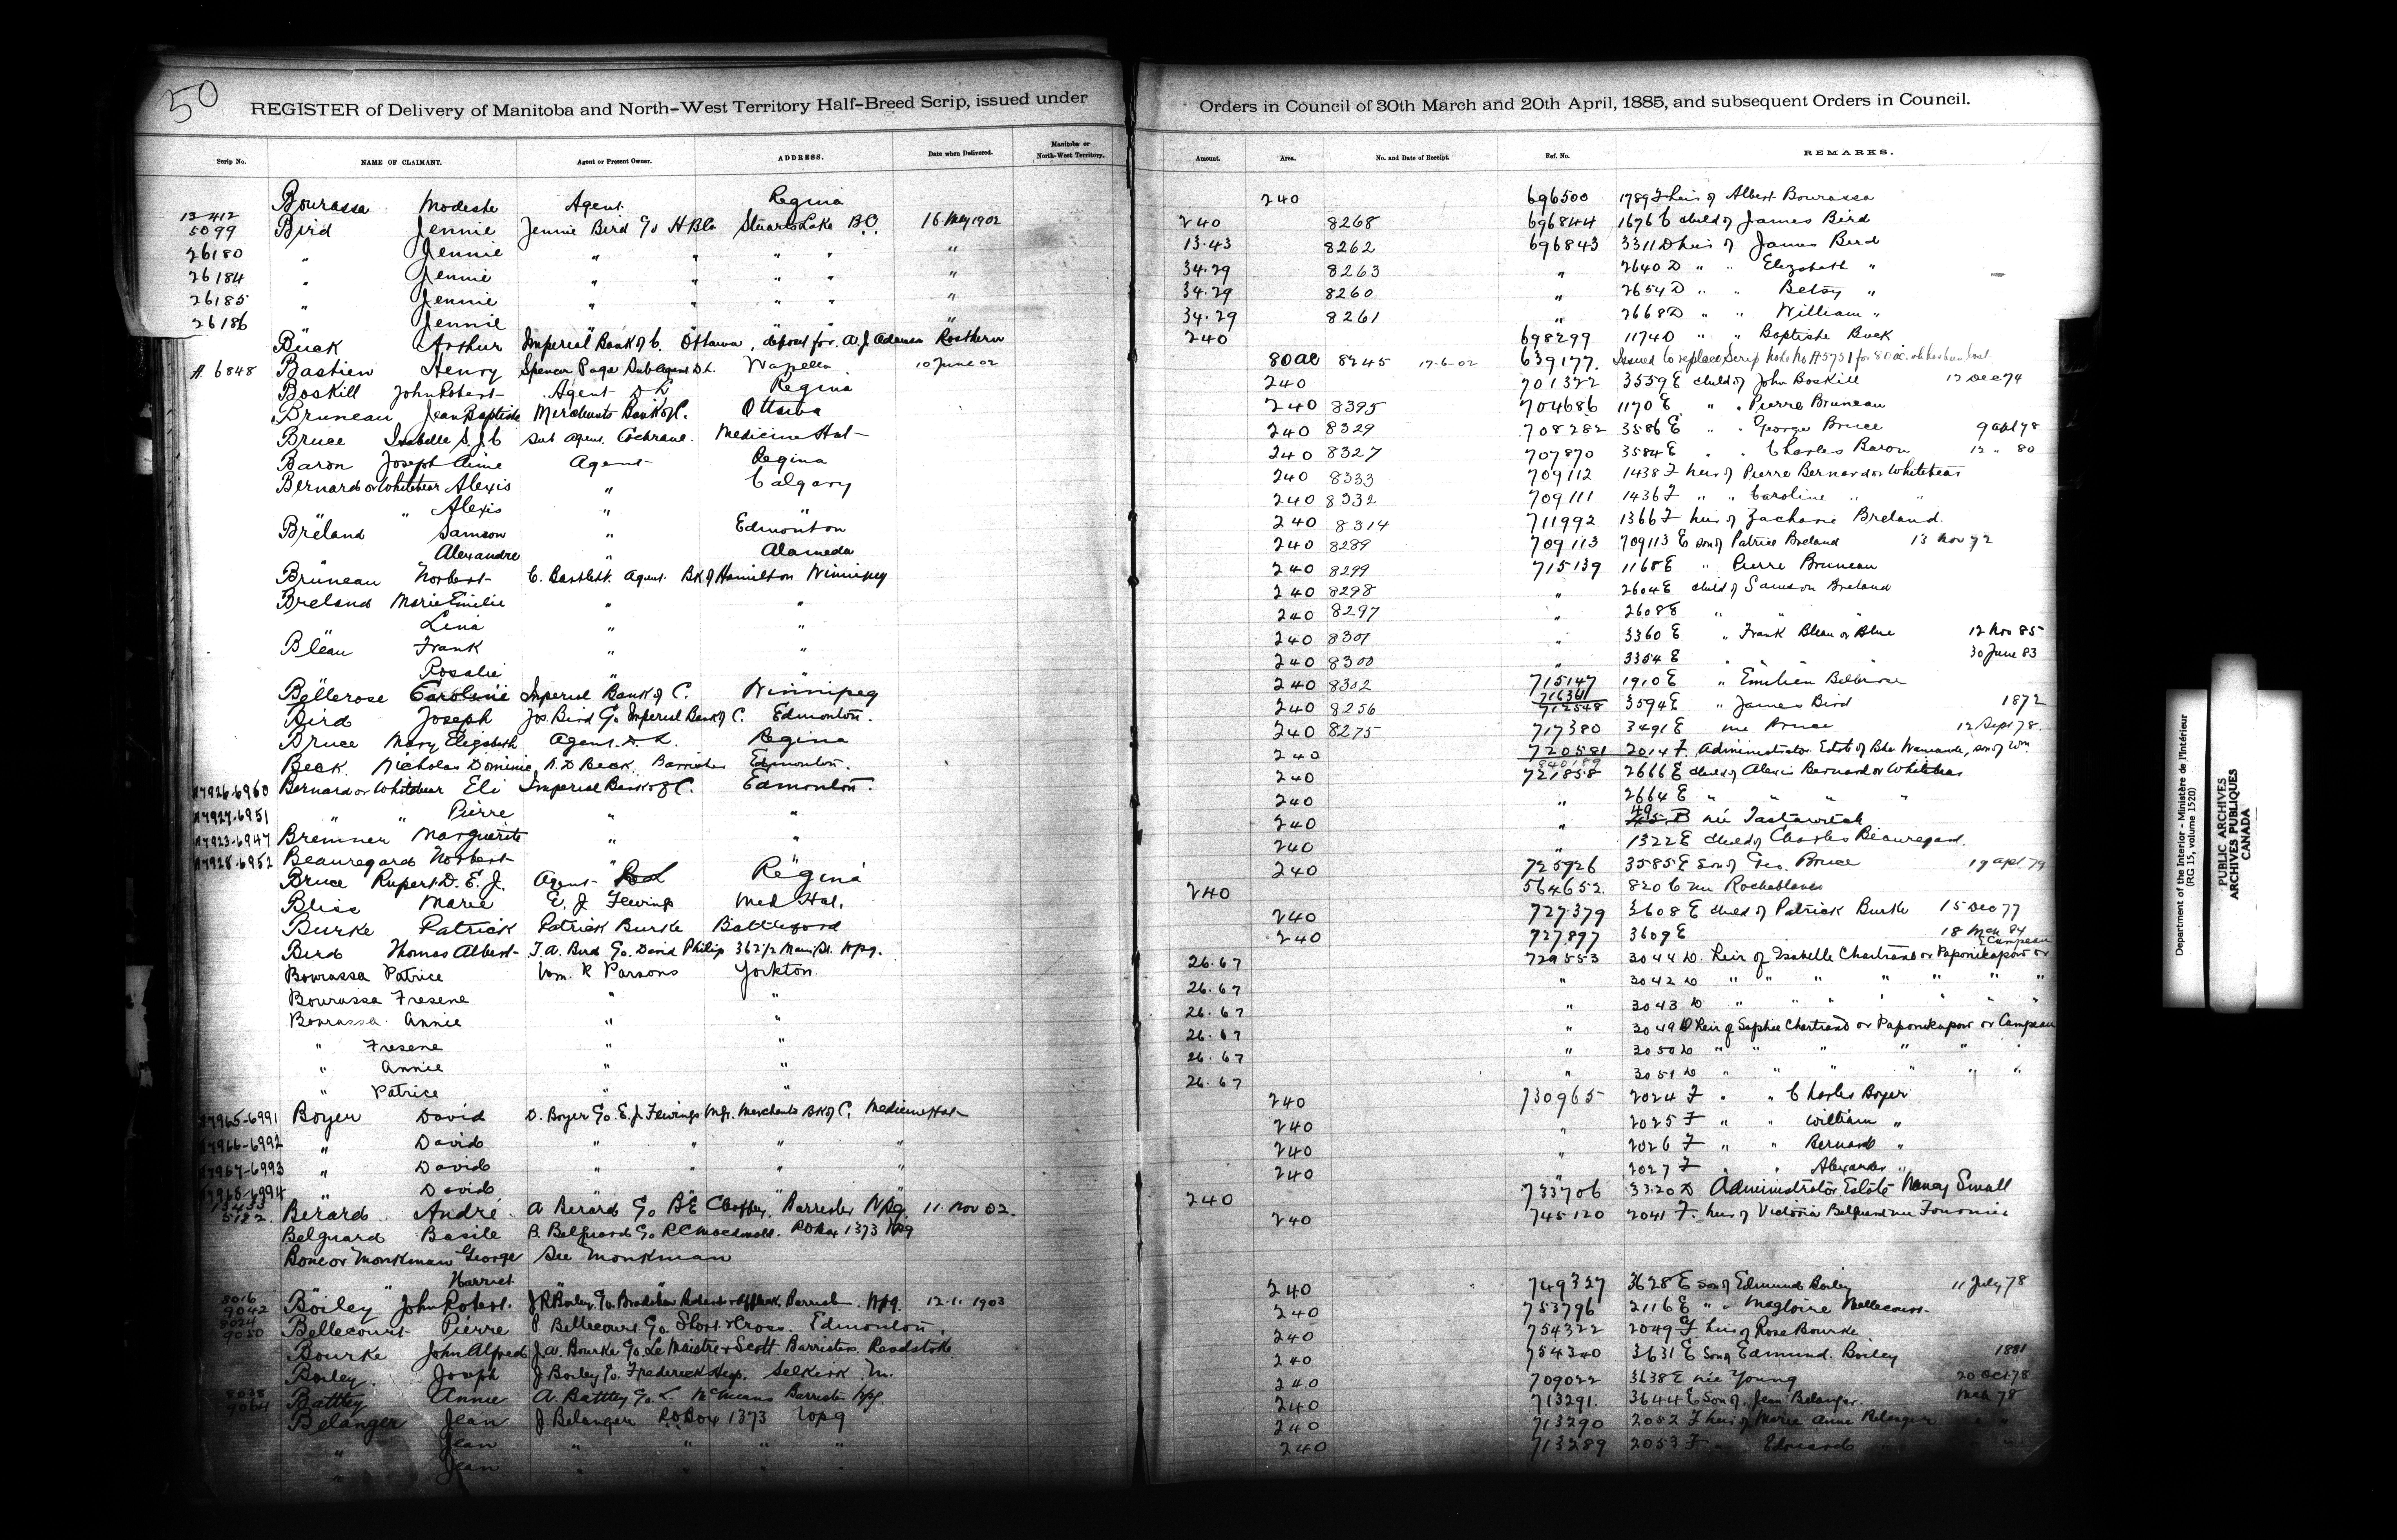 50
REGISTER of Delivery of Manitoba and North-West Territory Half-Breed Scrip, issued under Orders in Council of 30th March and 20th April, 1885, and subsequent Orders in Council.
Scrip No. NAME OF CLAIMANT. Agent or Present Owner. ADDRESS. Date when Delivered. Manitoba or North-West Territory. Amount. Area. No. and Date of Receipt. Ref. No. REMARKS.
Bourassa Modeste Agent Regina 240 696500 1789 F heir of Albert Bourassa
13412 5099 Bird Jennie Jennie Bird c/o HBCo Stuarts Lake B.C. 16 May 1902 240 8268 696844 1676 C child of James Bird
26180 " Jennie " " " " " 13.43 8262 696843 3311 D heir of James Bird
26184 " Jennie " " " " " 34.29 8263 " 2640 D " " Elizabeth "
26185 " Jennie " " " " " 34.29 8260 " 2654 D " " Betsy "
26186 " Jennie " " " " " 34.29 8261 " 2668 D " " William "
Buck Arthur Imperial Bank of C. Ottawa, deposit for A. J. Adamson Rosthern 240 698299 1174 D " " Baptiste Buck
A 6848 Bastien Henry Spencer Page Sub Agent D.L. Wapella 10 June 02 80 ac 8245 17-6-02 639177 Issued to replace Scrip Note No A5751 for 80 ac. which has been lost
Boskill John Robert Agent D L Regina 240 701322 3559 E child of John Boskill 12 Dec 74
Bruneau Jean Baptiste Merchants Bank of C. Ottawa 240 8395 704686 1170 E " " Pierre Bruneau
Bruce Isabelle S. J. C Sub Agent Cochrane Medicine Hat 240 8329 708282 3586 E " " George Bruce 9 Oct 78
Baron Joseph Aime Agent Regina 240 8327 707870 3584 E " " Charles Baron 12 " 80
Bernard or Whitebear Alexis " Calgary 240 8333 709112 1438 F heir of Pierre Bernard or Whitebear
" " Alexis " " 240 8332 709111 1436 F " " Caroline " "
Breland Samson " Edmonton 240 8314 711992 1366 F heir of Zacharie Breland
" Alexandre " Alameda 240 8289 709113 709113 E son of Patrice Breland 13 Nov 72
Bruneau Norbert C. Bartlett Agent Bk of Hamilton Winnipeg 240 8299 715139 1168 E " Pierre Bruneau
Breland Marie Emilie " " 240 8298 " 2604 E child of Samson Breland
" Lena " " 240 8297 " 2608 E " "
Bleau Frank " " 240 8301 " 3360 E " Frank Bleau or Blue 12 Nov 85
" Rosalie " " 240 8300 " 3354 E " 30 June 83
Bellerose Caroline Imperial Bank of C. Winnipeg 240 8302 715147 1910 E " Emilien Bellerose
Bird Joseph Jos. Bird c/o Imperial Bank of C. Edmonton. 240 8256 716361 712548 3594 E " James Bird 1872
Bruce Mary Elizabeth Agent D. L. Regina 240 8275 717380 3491 E née Bruce 12 Sept 78.
Beck Nicholas Dominic N. D Beck Barrister Edmonton. 240 720581 2014 F. Administrator Estate of
A7926-6960 Bernard or Whitebear Eli Imperial Bank of C. Edmonton. 240 840189 721858 2666 E child of Alexis Bernard or Whitebear
A7927-6951 " " Pierre " " 240 " 2664 E " " " "
A7923-6947 Bremner Marguerite " " 240 " née Tastawitch
A7928-6952 Beauregard Norbert " " 240 1322 E child of Charles Beauregard.
Bruce Rupert D. E. J. Agent Regina 240 725926 3585 E son of Geo. Bruce 19 Apl 79
Bliss Marie E. J Fewings Med Hat. 240 564652 820 C née Rocheblave
Burke Patrick Patrick Burke Battleford 240 727379 3608 E child of Patrick Burke 15 Dec 77
Bird Thomas Albert T. A. Bird c/o David Philip 362 1/2 Main St. Wpg. 240 727897 3609 E 18 Mch 84
Bourassa Patrice Wm. R Parsons Yorkton. 26.67 729553 3044 D. Heir of Isabelle Chartrand or Paponikapow or Campeau
Bourassa Fresene " " 26.67 " 3042 D " " " " "
Bourassa Annie " " 26.67 " 3043 D " " " " "
" Fresene " " 26.67 " 3049 D Heir of Sophie Chartrand or Paponikapow or Campeau
" Annie " " 26.67 " 3050 D " " " " "
" Patrice " " 26.67 " 3051 D " " " " "
A7965-6991 Boyer David D. Boyer c/o E. J Fewings Mgr. Merchants Bk of C. Medicine Hat 240 730965 2024 F " " Charles Boyer
A7966-6992 " David " " " " 240 " 2025 F " " William "
A7967-6993 " David " " " " 240 " 2026 F " " Bernard "
A7968-6994 " David " " " " 240 " 2027 F " " Alexander "
13433 5122 Berard André A Berard c/o Barrister Wpg. 11 Nov 02. 240 733706 3320 D Administrator Estate Nancy Small
Belguard Basile B. Belguard c/o R C Macdonald P O Box 1373 Wpg 240 745120 2041 F. heir of Victoria Belguard née Fournier
Bone or Monkman George See Monkman
" Harriet "
8016 9042 Boiley John Robert J R Boiley c/o Bradshaw Barrister Wpg. 12.1.1903 240 749327 3628 E son of Edmund Boiley 11 July 78
8024 9050 Bellecourt Pierre P. Bellecourt c/o Short & Cross. Edmonton. 240 753796 2116 E " " Magloire Bellecourt
Bourke John Alfred J. A. Bourke c/o Le Maistre & Scott Barristers 240 754322 2049 F heir of Rose Bourke
Boiley Joseph J Boiley c/o Frederick Heap. Selkirk M. 240 754340 3631 E Son of Edmund Boiley 1881
8038 9064 Battley Annie A. Battley c/o L. McMeans Barrister Wpg. 240 709022 3638 E née Young 20 Oct 78
Belanger Jean J Belanger P.O Box 1373 Wpg 240 713291 3644 E Son of Jean Belanger Mch 78
" Jean " " " " 240 713290 2052 F heir of Marie Anne Belanger
" Jean " " " " 240 713289 2053 F " Edouard
Department of the Interior - Ministère de l'Intérieur
(RG 15, volume 1520)
PUBLIC ARCHIVES
ARCHIVES PUBLIQUES
CANADA